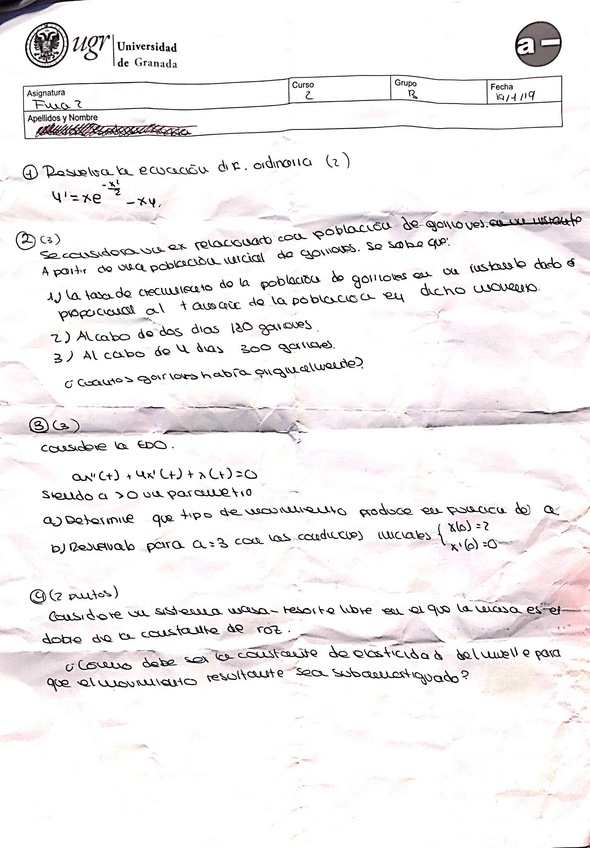 ugr Universidad
de Granada
a-
Asignatura
Curso
2
Grupo
B
Fecha
Apellidos y Nombre
① Resuelva la ecuación dif. ordinaria (2)
y' = xe^(-x²/2) - xy.
② (3)
Se considera un ex relacionado con población de gorriones. en un instante
A partir de una población inicial de gorriones. Se sabe que:
1) La tasa de crecimiento de la población de gorriones en un instante dado es
propocional al tamaño de la población en dicho momento.
2) Al cabo de dos dias 180 gorriones.
3) Al cabo de 4 dias 300 gorriones.
¿Cuantos gorriones había originalmente?
③ (3)
Considere la EDO.
ax''(t) + 4x'(t) + x(t) = 0
siendo a > 0 un parametro
a) Determine que tipo de movimiento produce en función de a
b) Resuelvalo para a = 3 con las condiciones iniciales { x(0) = 2
x'(0) = 0
④ (2 puntos)
Considere un sistema masa-resorte libre en el que la masa es el
doble de la constante de roz.
¿Como debe ser la constante de elasticidad del muelle para
que el movimiento resultante sea subamortiguado?